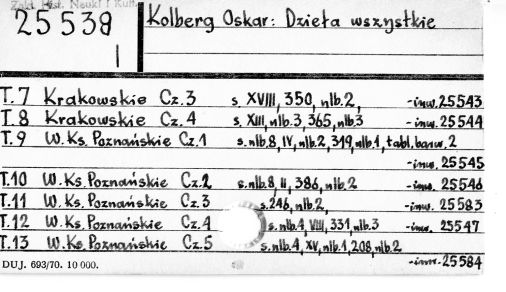 Zakł. Hist. Nauki i
25538 Kolberg Oskar: Dzieła wszystkie
1
T.7 Krakowskie Cz.3 s. XVIII, 350, nlb.2, -inw. 25543
T.8 Krakowskie Cz.4 s. XIII, nlb.3, 365, nlb.3 -inw. 25544
T.9 W. Ks. Poznańskie Cz.1 s. nlb.8, IV, nlb.2, 319, nlb.1, tabl. barw. 2
-inw. 25545
T.10 W. Ks. Poznańskie Cz.2 s. nlb.8, II, 386, nlb.2 -inw. 25546
T.11 W. Ks. Poznańskie Cz.3 s. 246, nlb.2, -inw. 25583
T.12 W. Ks. Poznańskie Cz.4 s. nlb.4, VIII, 331, nlb.3 -inw. 25547
T.13 W. Ks. Poznańskie Cz.5 s. nlb.4, XV, nlb.1, 208, nlb.2
DUJ. 693/70. 10 000. -inw. 25584